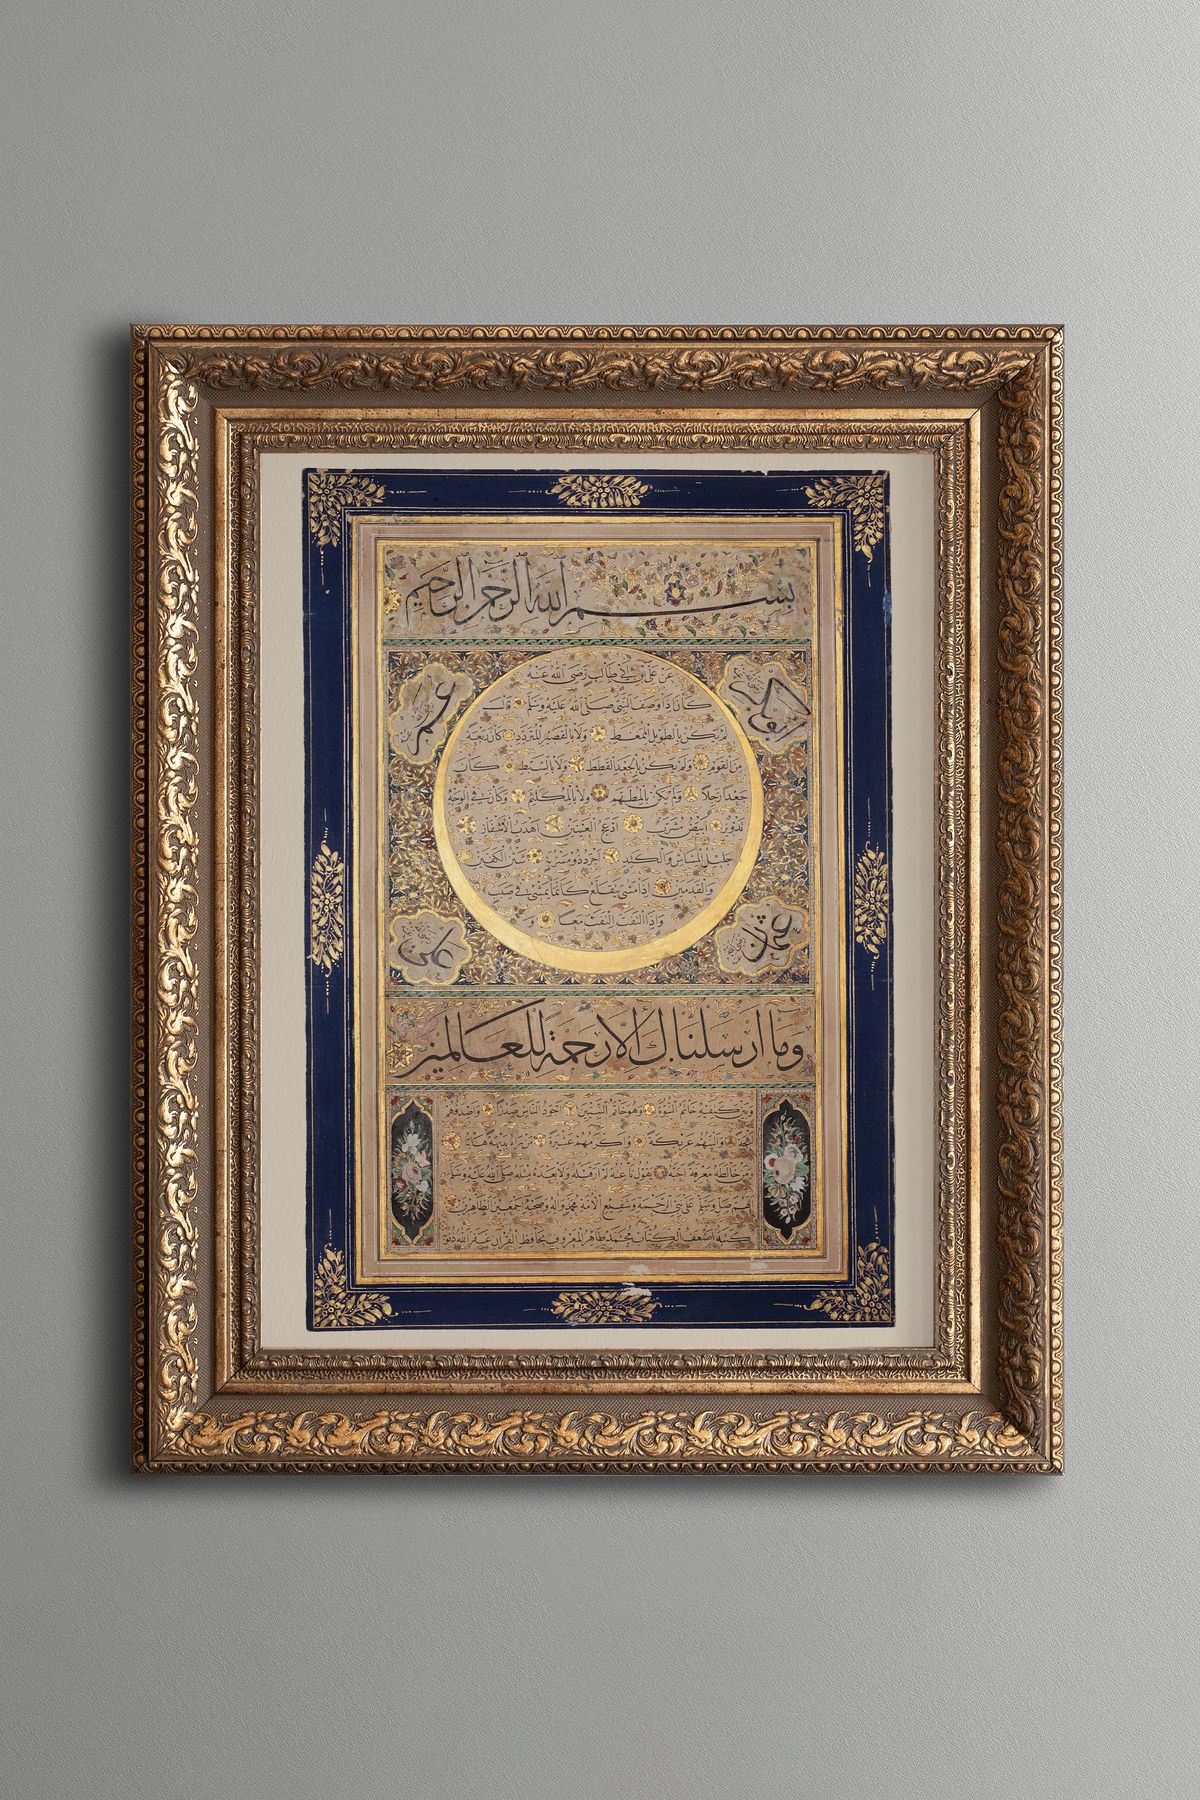 بسم الله الرحمن الرحيم
عن علي بن أبي طالب رضي الله عنه
كان إذا وصف النبي صلى الله عليه وسلم قال
لم يكن بالطويل الممغط ولا بالقصير المتردد كان ربعة
من القوم ولم يكن بالجعد القطط ولا بالسبط كان
جعدا رجلا ولم يكن بالمطهم ولا بالمكلثم وكان في الوجه
تدوير أبيض مشرب أدعج العينين أهدب الأشفار
جليل المشاش والكتد أجرد ذو مسربة شثن الكفين
والقدمين إذا مشى يتقلع كأنما يمشي في صبب
وإذا التفت التفت معا و
أبو بكر
عمر
عثمان
علي
وما أرسلناك إلا رحمة للعالمين
وبين كتفيه خاتم النبوة وهو خاتم النبيين أجود الناس صدرا وأصدقهم
لهجة وألينهم عريكة وأكرمهم عشيرة من رآه بديهة هابه
ومن خالطه معرفة أحبه يقول ناعته لم أر قبله ولا بعده مثله صلى الله عليه وسلم
اللهم صل وسلم على نبي الرحمة وشفيع الأمة محمد وآله وصحبه أجمعين الطاهرين
كتبه أضعف الكتاب محمد طاهر المعروف بحافظ القرآن غفر الله ذنوبه